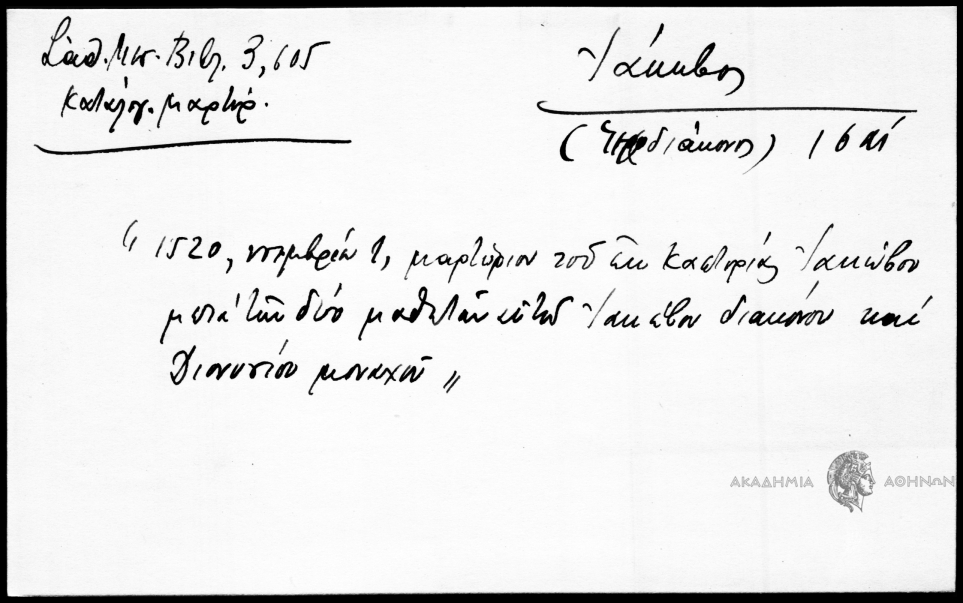 Σαθ. Μεσ. Βιβλ. 3, 605
Κατάλογ. μαρτύρ.
Ἰάκωβος
(διάκονος) 16 αἰ
“ 1520, νοεμβρίου 1, μαρτύριον τοῦ ἐκ Καστοριᾶς Ἰακώβου
μετὰ τῶν δύο μαθητῶν αὐτοῦ Ἰακώβου διακόνου καὶ
Διονυσίου μοναχοῦ „
ΑΚΑΔΗΜΙΑ ΑΘΗΝΩΝ